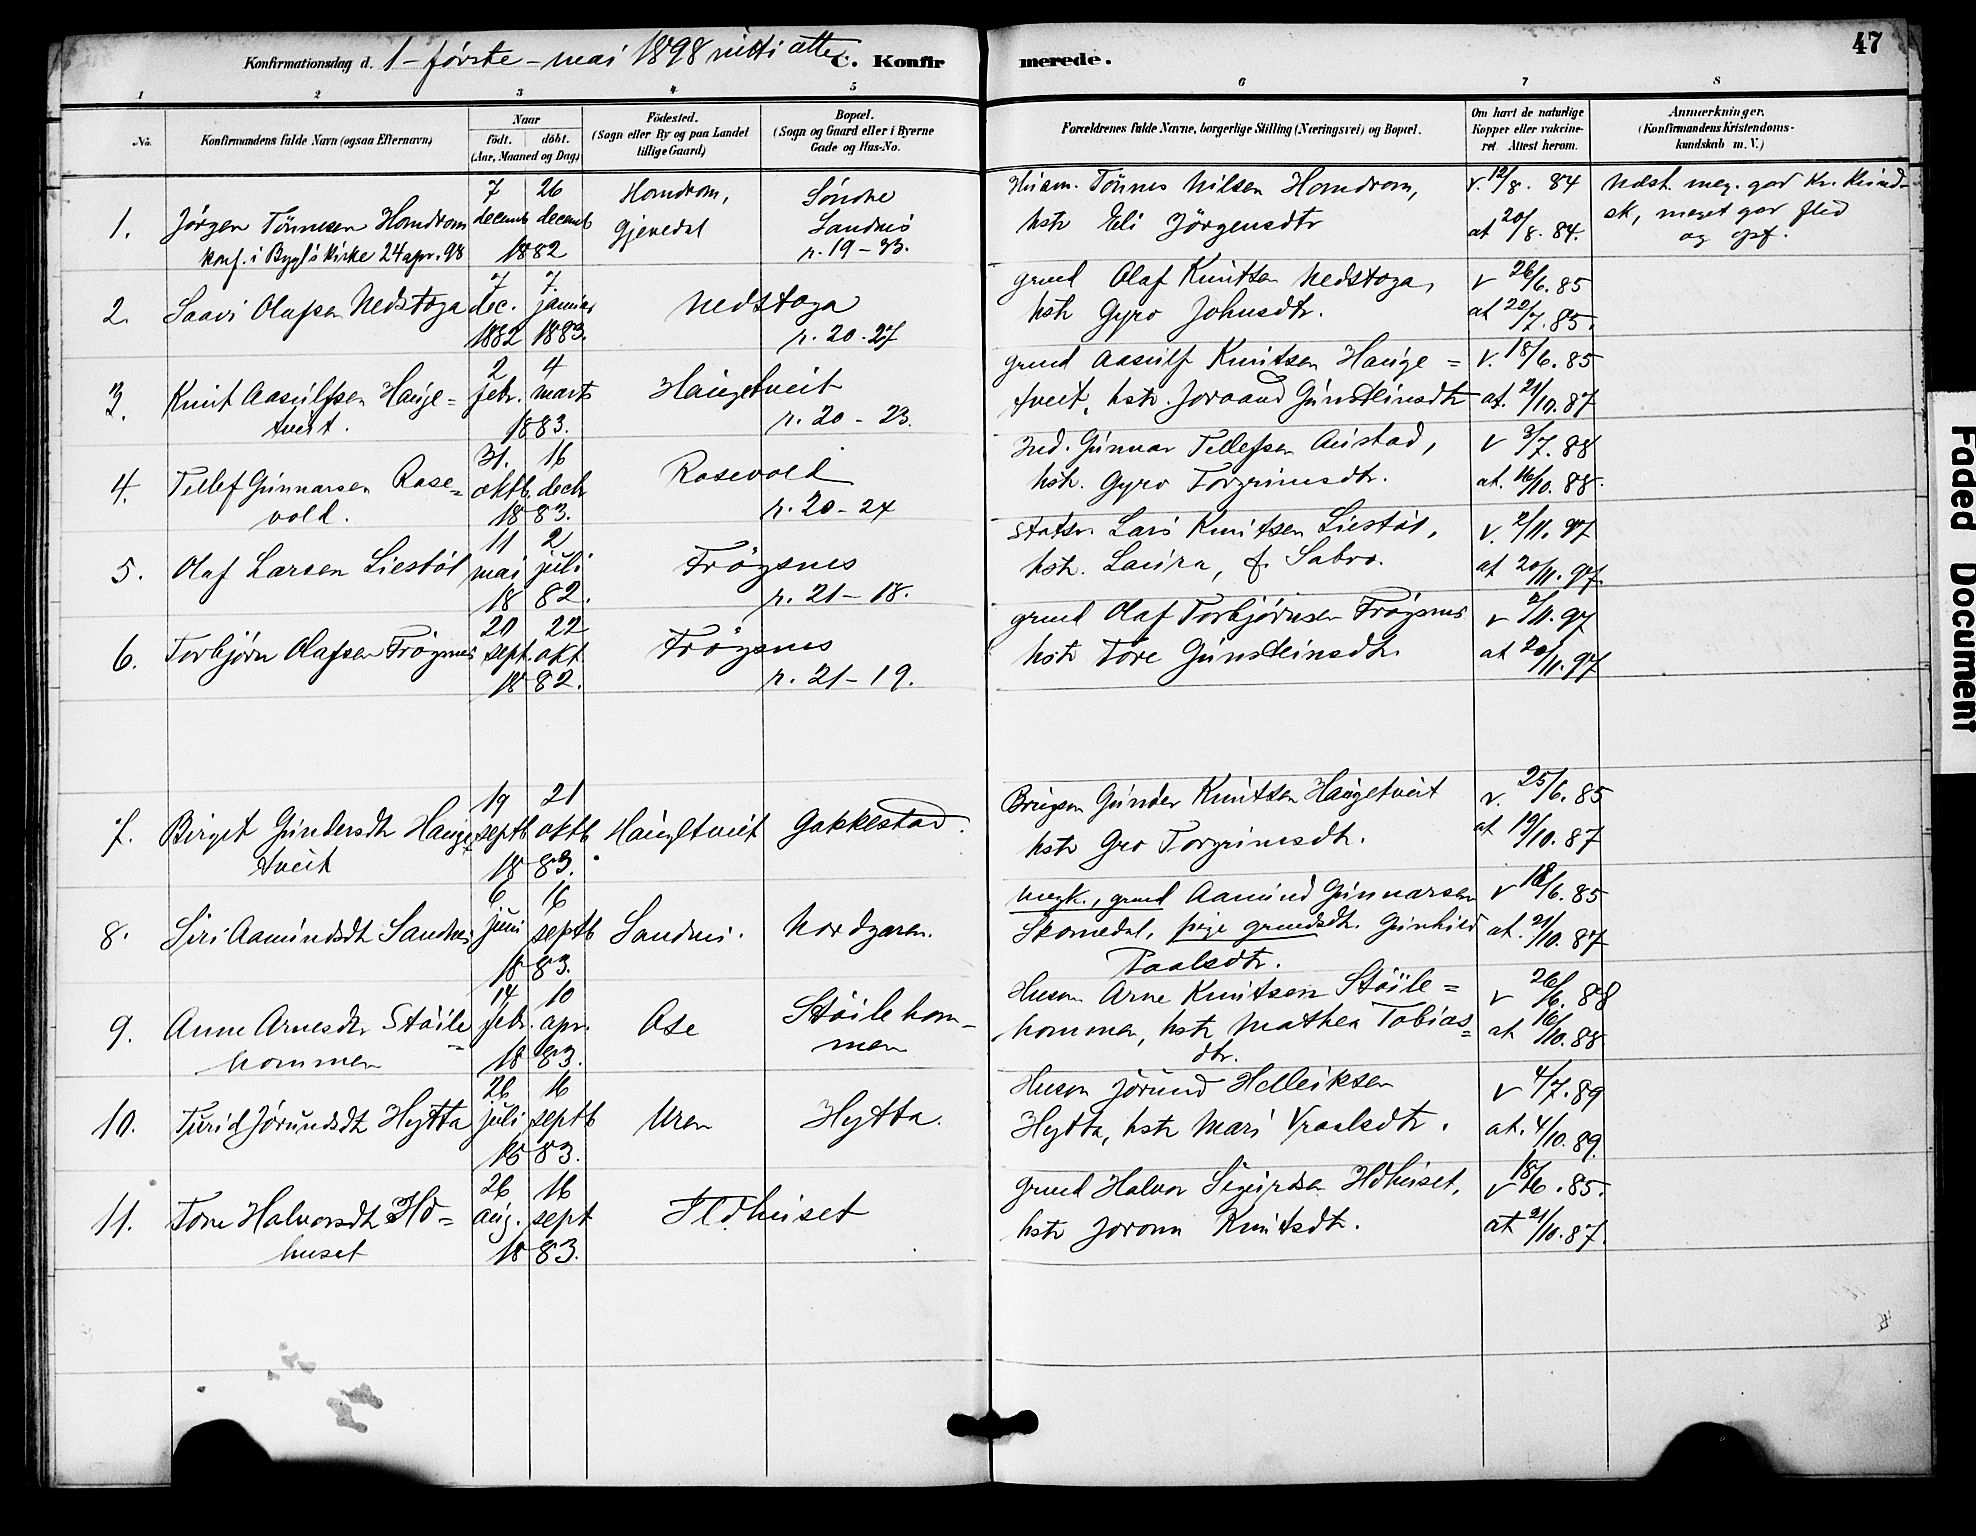 47
Konfirmationsdag d. 1 - første - mai 1898 nitti atte. C. Konfirmerede.
1 2 3 4 5 6 7 8
No. Konfirmandens fulde Navn (ogsaa Efternavn) Naar födt. döbt. (Aar, Maaned og Dag) Födested. (Sogn eller By og paa Landet tillige Gaard) Bopæl. (Sogn og Gaard eller i Byerne Gade og Hus-No. Forældrenes fulde Navne, borgerlige Stilling (Næringsvei) og Bopæl. Om havt de naturlige Kopper eller vakcineret. Attest herom. Anmerkninger. (Konfirmandens Kristendomskundskab m. V.)
1. Jørgen Tønnesen Homdrom 7 decemb 26 decemb 1882 Homdrom, Gjevedal Søndre Sandnes n. 19 - 33. Husm. Tønnes Nilsen Homdrom, v. 12/8. 84
konf. i Bygl's kirke 24 apr. 98 hstr Eli Jörgensdtr at 20/8. 84. Ndst. meg. god Kr. kundsk, meget god flid og opf.
2. Saavi Olafsen Nedstoga 7 dec. 1882 7. januar 1883. Nedstoga n. 20 - 27 grund Olaf Knutsen Nedstoga, v 26/6. 85
hstr Gyro Johnsdtr. at 22/7. 85.
3. Knut Aasulfsen Hauge= 2 febr. 4 marts 1883. Haugetveit n. 20 - 23. grund Aasulf Knutsen Hauge= v. 18/6. 85
tveit. tveit, hstr. Joraand Gunsteinsdtr at. 21/10. 87
4. Tellef Gunnarsen Rose= 31. oktb. 16 decb 1883. Rosevold n. 20 - 24 Ind. Gunnar Tellefsen Austad, v 3/7. 88
vold. hstr. Gyro Torgrimsdtr. at. 16/10. 88.
5. Olaf Larsen Liestøl 11 mai 2 juli 1882. Frøysnes n. 21 - 18. Lars Knutsen Liestøl, v. 2/11. 97
hstr. Laura, f. Sabro. at 20/11. 97.
6. Torbjørn Olafsen Frøysnes 20 sept. 22 okt 1882. Frøysnes n. 21 - 19. grund Olaf Torbjørnsen Frøysnes v 2/11. 97
hstr Tore Gunsteinsdtr. at 20/11. 97
7. Birget Gundersdtr Hauge= 19 septb 21 oktb 1883. Haugetveit Gakkestad. Brugsm Gunder Knutsen Haugetveit v. 25/6. 85
tveit hstr Gro Torgrimsdtr. at 19/10. 87
8. Siri Aamundsdtr Sandnes 6 juni 16 septb 1883. Sandnes. Nordgaren. ungk., grund Aamund Gunnarsen v 18/6. 85
Skomedal, pige grundsdtr. Gunhild at. 21/10. 87
Paalsdtr.
9. Anne Arnesdtr Støile= 14 febr. 10 apr. 1883. Ose Støilehommen Husm Arne Knutsen Støile= v 26/6. 88
hommen hommen, hstr Mathea Tobias= at 16/10. 88
dtr.
10. Turid Jørundsdtr Hytta 26 juli 16 septb 1883. Uren Hytta. Husm Jørund Helleiksen v 4/7. 89
Hytta, hstr Mari Vraalsdtr. at. 4/10. 89.
11. Tone Halvorsdtr Ild= 26 aug. 16 sept 1883. Ildhuset grund Halvor Sigurdsen Ildhuset, v 18/6. 85.
huset hstr Joronn Knutsdtr. at 21/10. 87.
Faded Document